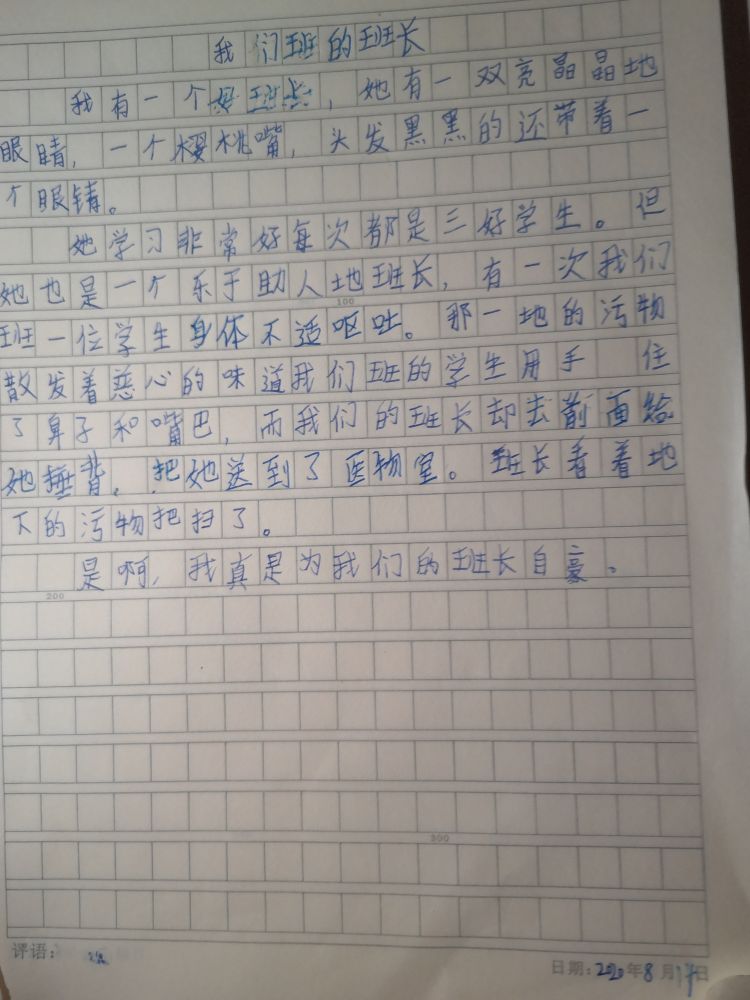 我们班的班长
我有一个好班长，她有一双亮晶晶地
眼睛，一个樱桃嘴，头发黑黑的还带着一
个眼镜。
她学习非常好每次都是三好学生。但
她也是一个乐于助人地班长，有一次我们
100
班一位学生身体不适呕吐。那一地的污物
散发着恶心的味道我们班的学生用手 住
了鼻子和嘴巴，而我们的班长却去前面给
她捶背，把她送到了医物室。班长看着地
下的污物把扫了。
是啊，我真是为我们的班长自豪。
200
300
评语：
日期：2020年8月17日